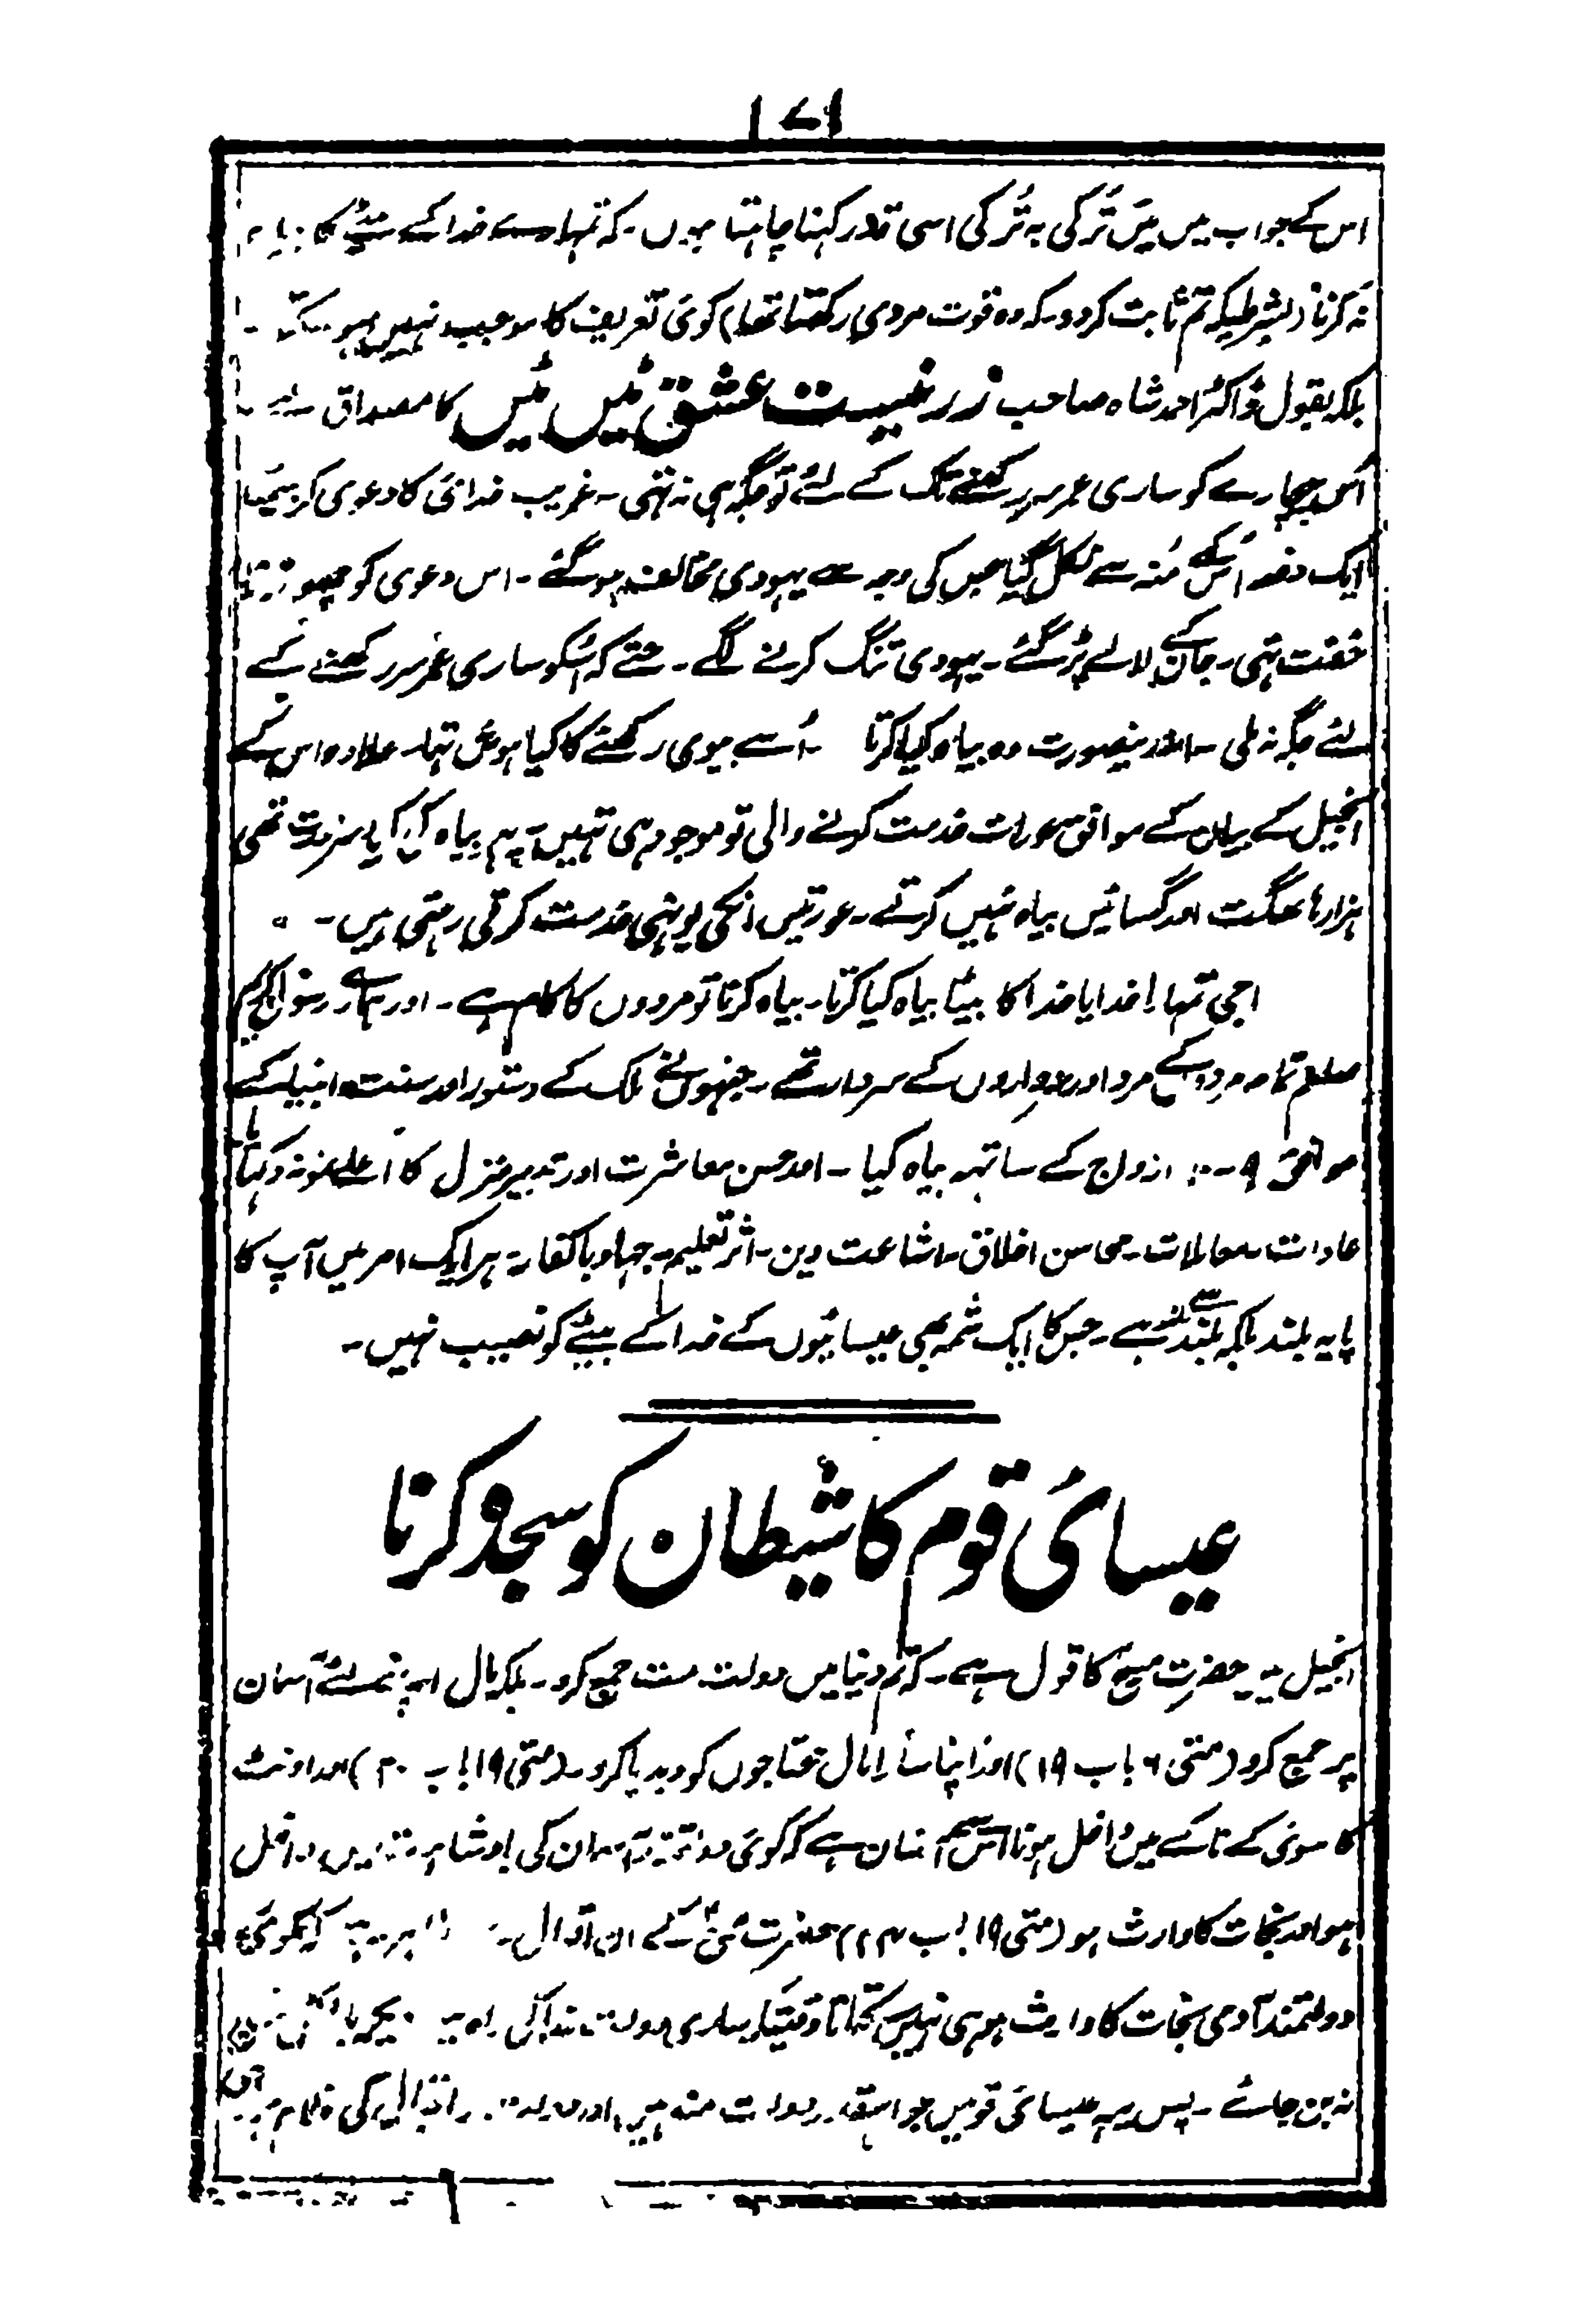 ۱۷۱
اس کے جواب میں میں تُرکی بہ تُرکی اسی قدر کہنا چاہتا ہوں۔ کہ تمہارے خدا کے بیٹے کا بیاہ
نہ کرنا (بشرطیکہ تم ثابت کردو۔ کہ وہ قوت مردی رکھتا تھا) کوئی تعریف کا موجب نہیں ہو سکتا۔
بلکہ بقول ڈاکٹر احمد شاہ صاحب زر نیست عشق ٹیں ٹیں کا مصداق ہے۔
اُس بیچارے کو ساری عمر سر رکھنے تک کے لئے تو جگہ ہی نہ تھی۔ غریب خدائی کا دعوی کر بیٹھا
ایک دفعہ اُسکے مُنہ سے نکل گیا جس کی وجہ سے یہودی مخالف ہوگئے۔ اس دعوی کو
خفت تھی۔ جان کے لالے پڑ گئے۔ یہودی تنگ کرنے لگے۔ حتے کہ اُسکو ساری عمر سر رکھنے کے
لئے جگہ نہ ملی۔ اندرینصورت وہ بیاہ کیا کرتا ۔ اُسے بیوی رکھنے کا کیا ہوش تھا۔ علاوہ اس کے
انجیل کے بیان کے موافق عورات خدمت کرنے والی تو موجود ہی تہیں۔ پہر بیاہ کی کیا ضرورت تھی
ہزارہا بھگت اور گسائیں بیاہ نہیں کرتے۔ عورتیں انکی یونہی خدمت کرتی رہتی ہیں۔
اجی تمہارا خدا یا خدا کا بیٹا بیاہ کیا کرتا۔ بیاہ کرنا تو مردوں کا کام ہے۔ اور ہمارے رسول کریم
صلعم تمام مردوں کے مرد اور سرداروں کے سردار تھے۔ جنہوں نے ملک کے دستور اور سنت انبیا کے
موافق ۹-۱۰ ازواج کے ساتہہ بیاہ کیا۔ اور حسن معاشرت اور تدبیر منزل کا اعلے نمونہ دکہایا
عادات۔ معاملات۔ محاسن اخلاق۔ اشاعت دین۔ اثر تعلیم۔ جہاد با کفار۔ ہر ایک امر میں آپ کا
پایہ بلند بلکہ بلند سے بلند ہے۔ جس کا ایک شمہ بھی عیسائیوں کے خدا کے بیٹے کو نصیب نہیں۔
عیسائی قوم کا شیطان کو سجدہ کرنا
انجیل میں حضرت مسیح کا قول ہے۔ کہ تم دنیا میں دولت مت جمع کرو۔ بلکہ مال اپنے لئے آسمان
پر جمع کرو (متی ۶ باب ۱۹) اور اپنا سارا مال محتاجوں کو دیدیا کرو۔ (متی ۱۹ باب ۲۰) اور اونٹ
کا سوئی کے ناکے میں داخل ہونا اس سے آسان ہے کہ کوئی دولتمند آسمان کی بادشاہت میں داخل
ہو اور نجات کا وارث ہو (متی ۱۹ باب ۲۴) حضرت کے ان اقوال
دولتمند آدمی نجات کا وارث ہو ہی نہیں سکتا تا وقتیکہ ساری دولت خدا کی راہ میں دیکر
نہ بن جائے۔ پس یہہ عیسائی قومیں جو اسقدر دولت مند ہیں اور